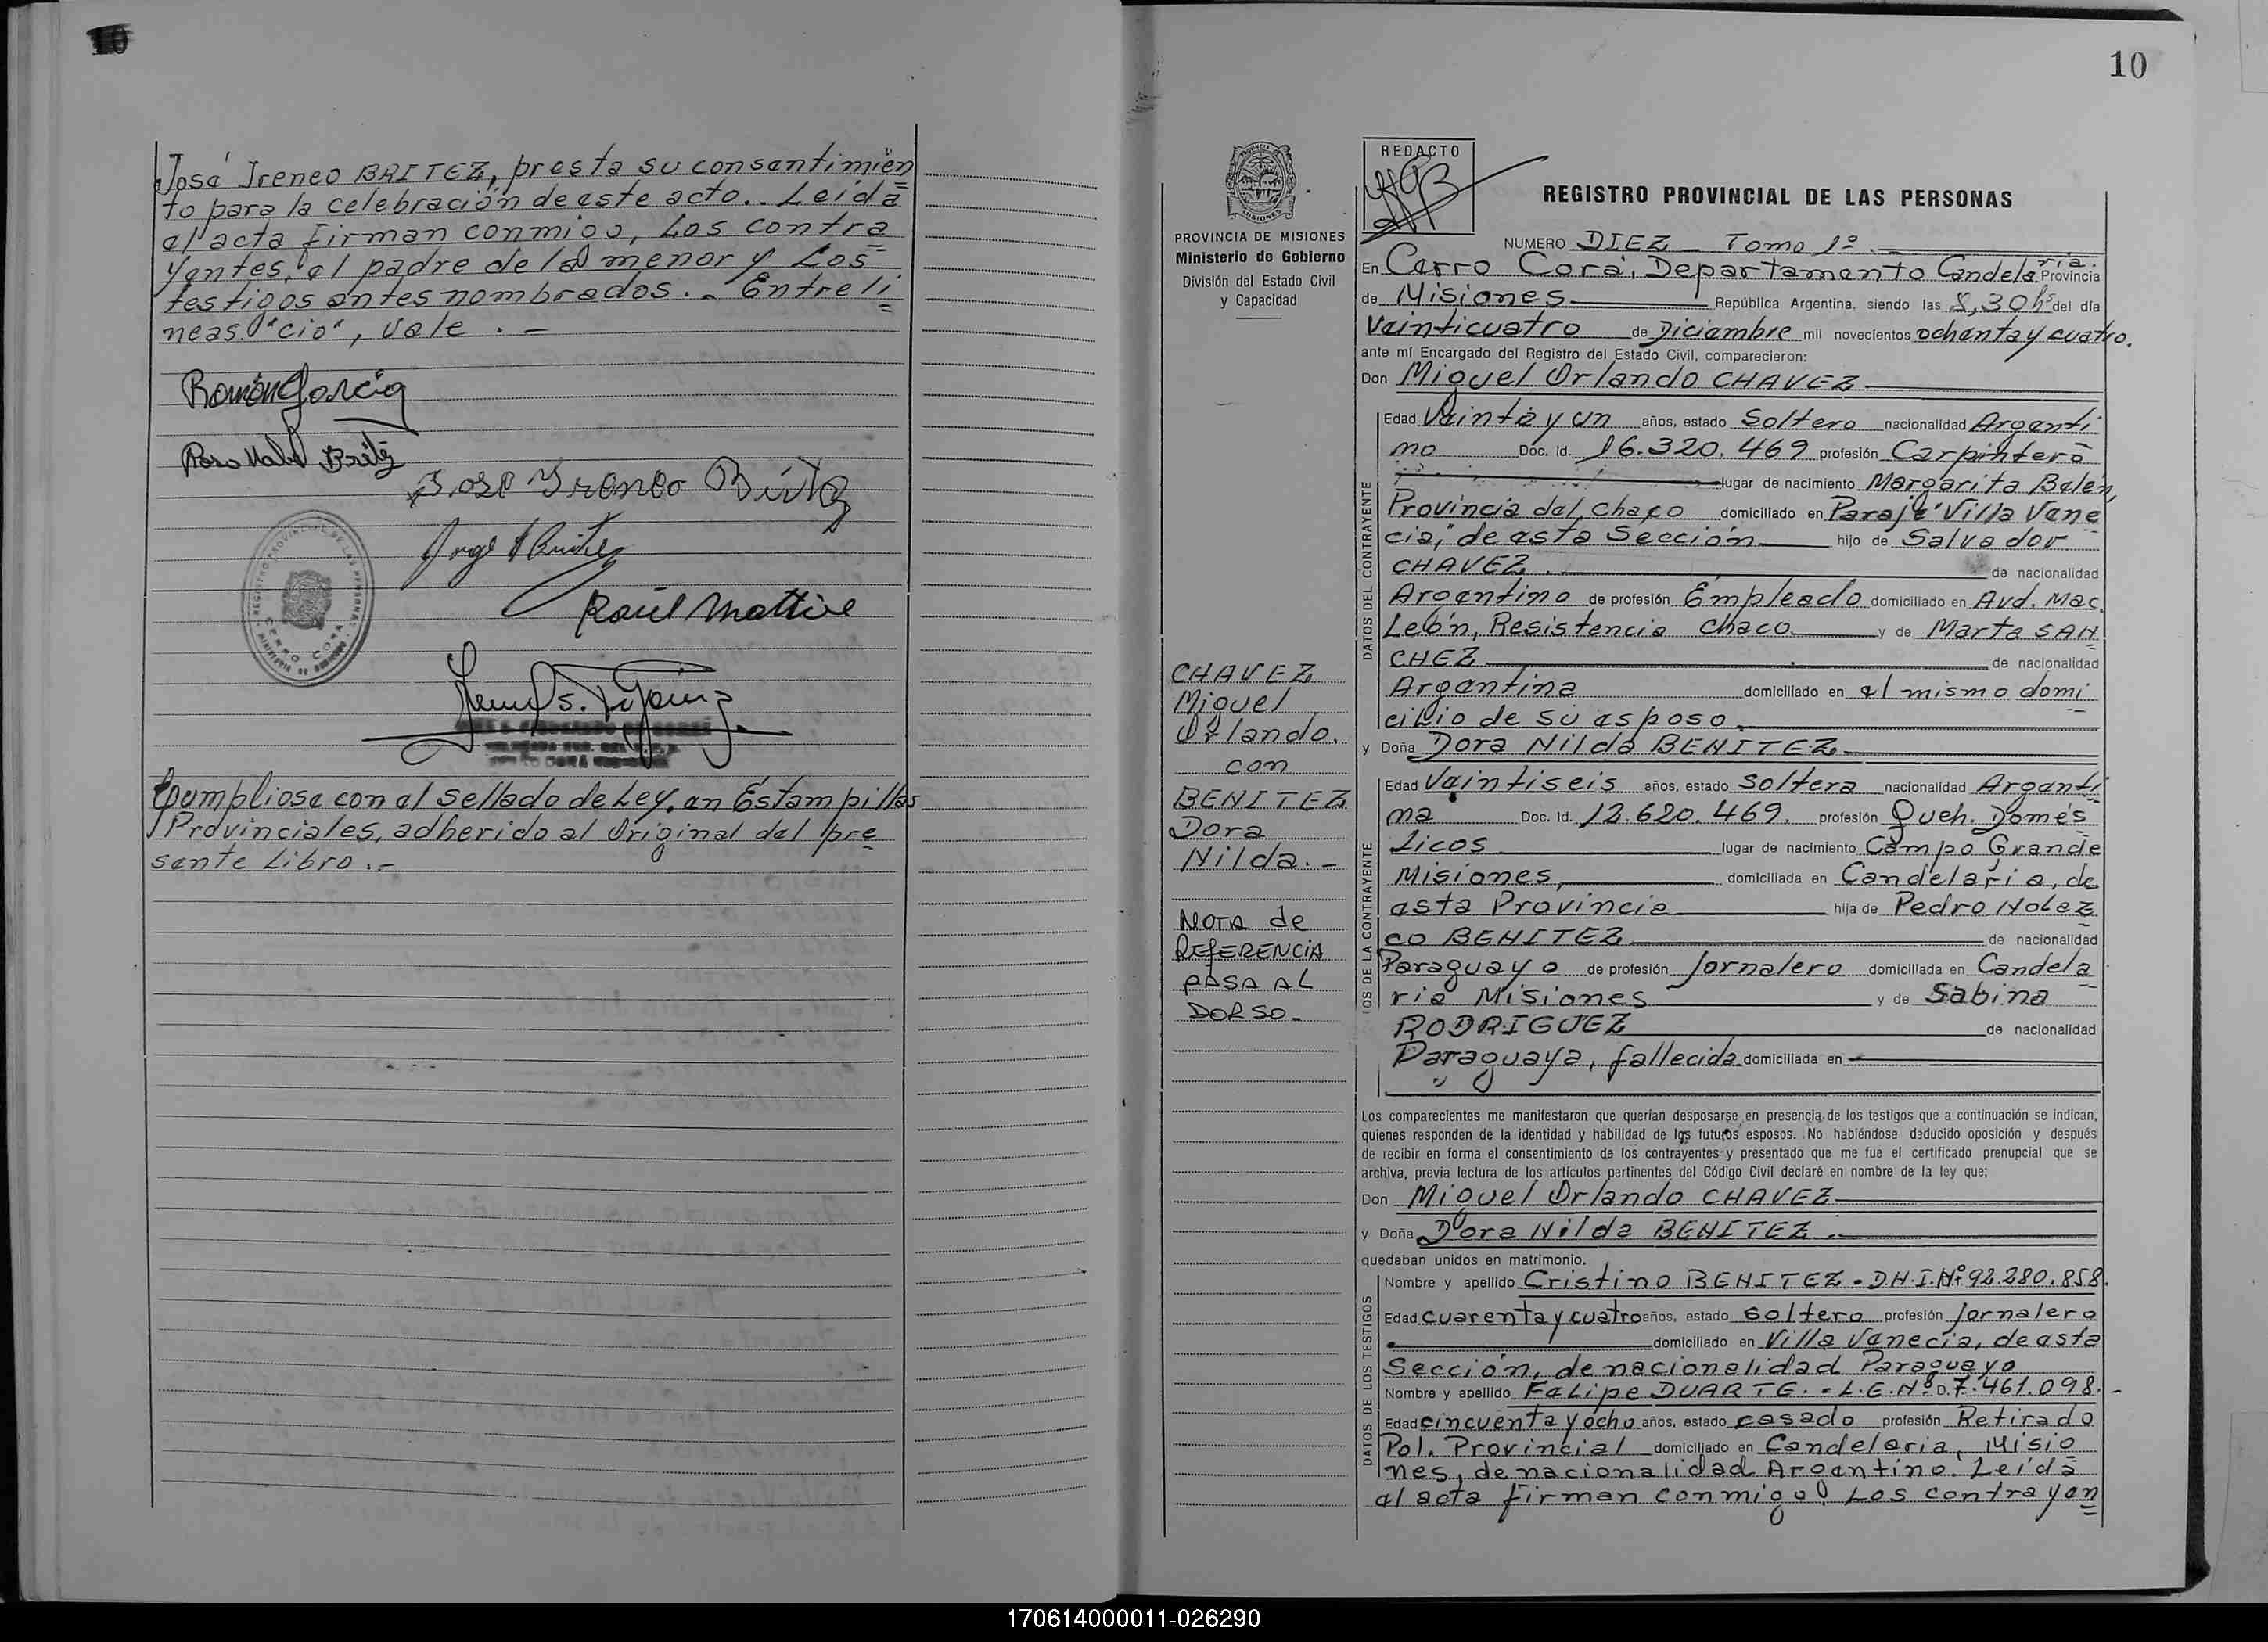 10
José Ireneo BRITEZ, presta su consentimien
to para la celebración de este acto.. Leída
el acta firman conmigo, Los contra
yentes, el padre de la menor y Los
testigos antes nombrados.. Entreli
neas "cio", vale.-
Ramón Garcia
Rosa Mabel Britez
Jose Ireneo Britez
Raúl Mattive
REGISTRO PROVINCIAL DE LAS PERSONAS
CERRO CORA
MINISTERIO DE GOBIERNO
Cumpliose con el sellado de Ley, en Estampillas
Provinciales, adherido al Original del pre
sente Libro.-
10
PROVINCIA DE MISIONES
Ministerio de Gobierno
División del Estado Civil
y Capacidad
CHAVEZ
Miguel
Orlando.
con
BENITEZ
Dora
Nilda.-
NOTA de
REFERENCIA
PASA AL
DORSO-
REDACTO
REGISTRO PROVINCIAL DE LAS PERSONAS
NUMERO DIEZ - Tomo 1º.
En Cerro Corá, Departamento Candelaria. Provincia
de Misiones República Argentina, siendo las 8,30 hs del día
Veinticuatro de Diciembre mil novecientos ochenta y cuatro.
ante mí Encargado del Registro del Estado Civil, comparecieron:
Don Miguel Orlando CHAVEZ
DATOS DEL CONTRAYENTE
Edad Veinte y un años, estado Soltero nacionalidad Argenti
no Doc. Id. 16.320.469 profesión Carpintero
lugar de nacimiento Margarita Belén,
Provincia del Chaco domiciliado en Paraje "Villa Vene
cia," de esta Sección hijo de Salvador
CHAVEZ. de nacionalidad
Argentino de profesión Empleado domiciliado en Avd. Mac.
León, Resistencia Chaco y de Marta SAN
CHEZ de nacionalidad
Argentina domiciliado en el mismo domi
cilio de su esposo.
y Doña Dora Nilda BENITEZ
TOS DE LA CONTRAYENTE
Edad Veintiseis años, estado Soltera nacionalidad Argenti
na Doc. Id. 12.620.469. profesión Queh. Domés
ticos lugar de nacimiento Campo Grande
Misiones, domiciliada en Candelaria, de
esta Provincia hija de Pedro Nolaz
co BENITEZ de nacionalidad
Paraguayo de profesión Jornalero domiciliada en Candela
ria Misiones y de Sabina
RODRIGUEZ de nacionalidad
Paraguaya, fallecida domiciliada en
Los comparecientes me manifestaron que querían desposarse en presencia de los testigos que a continuación se indican,
quienes responden de la identidad y habilidad de los futuros esposos. No habiéndose deducido oposición y después
de recibir en forma el consentimiento de los contrayentes y presentado que me fue el certificado prenupcial que se
archiva, previa lectura de los artículos pertinentes del Código Civil declaré en nombre de la ley que;
Don Miguel Orlando CHAVEZ
y Doña Dora Nilda BENITEZ.
quedaban unidos en matrimonio.
DATOS DE LOS TESTIGOS
Nombre y apellido Cristino BENITEZ - D.N.I.Nº 92.280.858.
Edad cuarenta y cuatro años, estado soltero profesión Jornalero
domiciliado en Villa Venecia, de esta
Sección, de nacionalidad Paraguayo
Nombre y apellido Felipe DUARTE. - L.E.Nº D.7.461.098.-
Edad cincuenta y ocho años, estado casado profesión Retirado
Pol. Provincial domiciliado en Candelaria, Misio
nes, de nacionalidad Argentino. Leída
el acta firman conmigo, Los contrayen
170614000011-026290